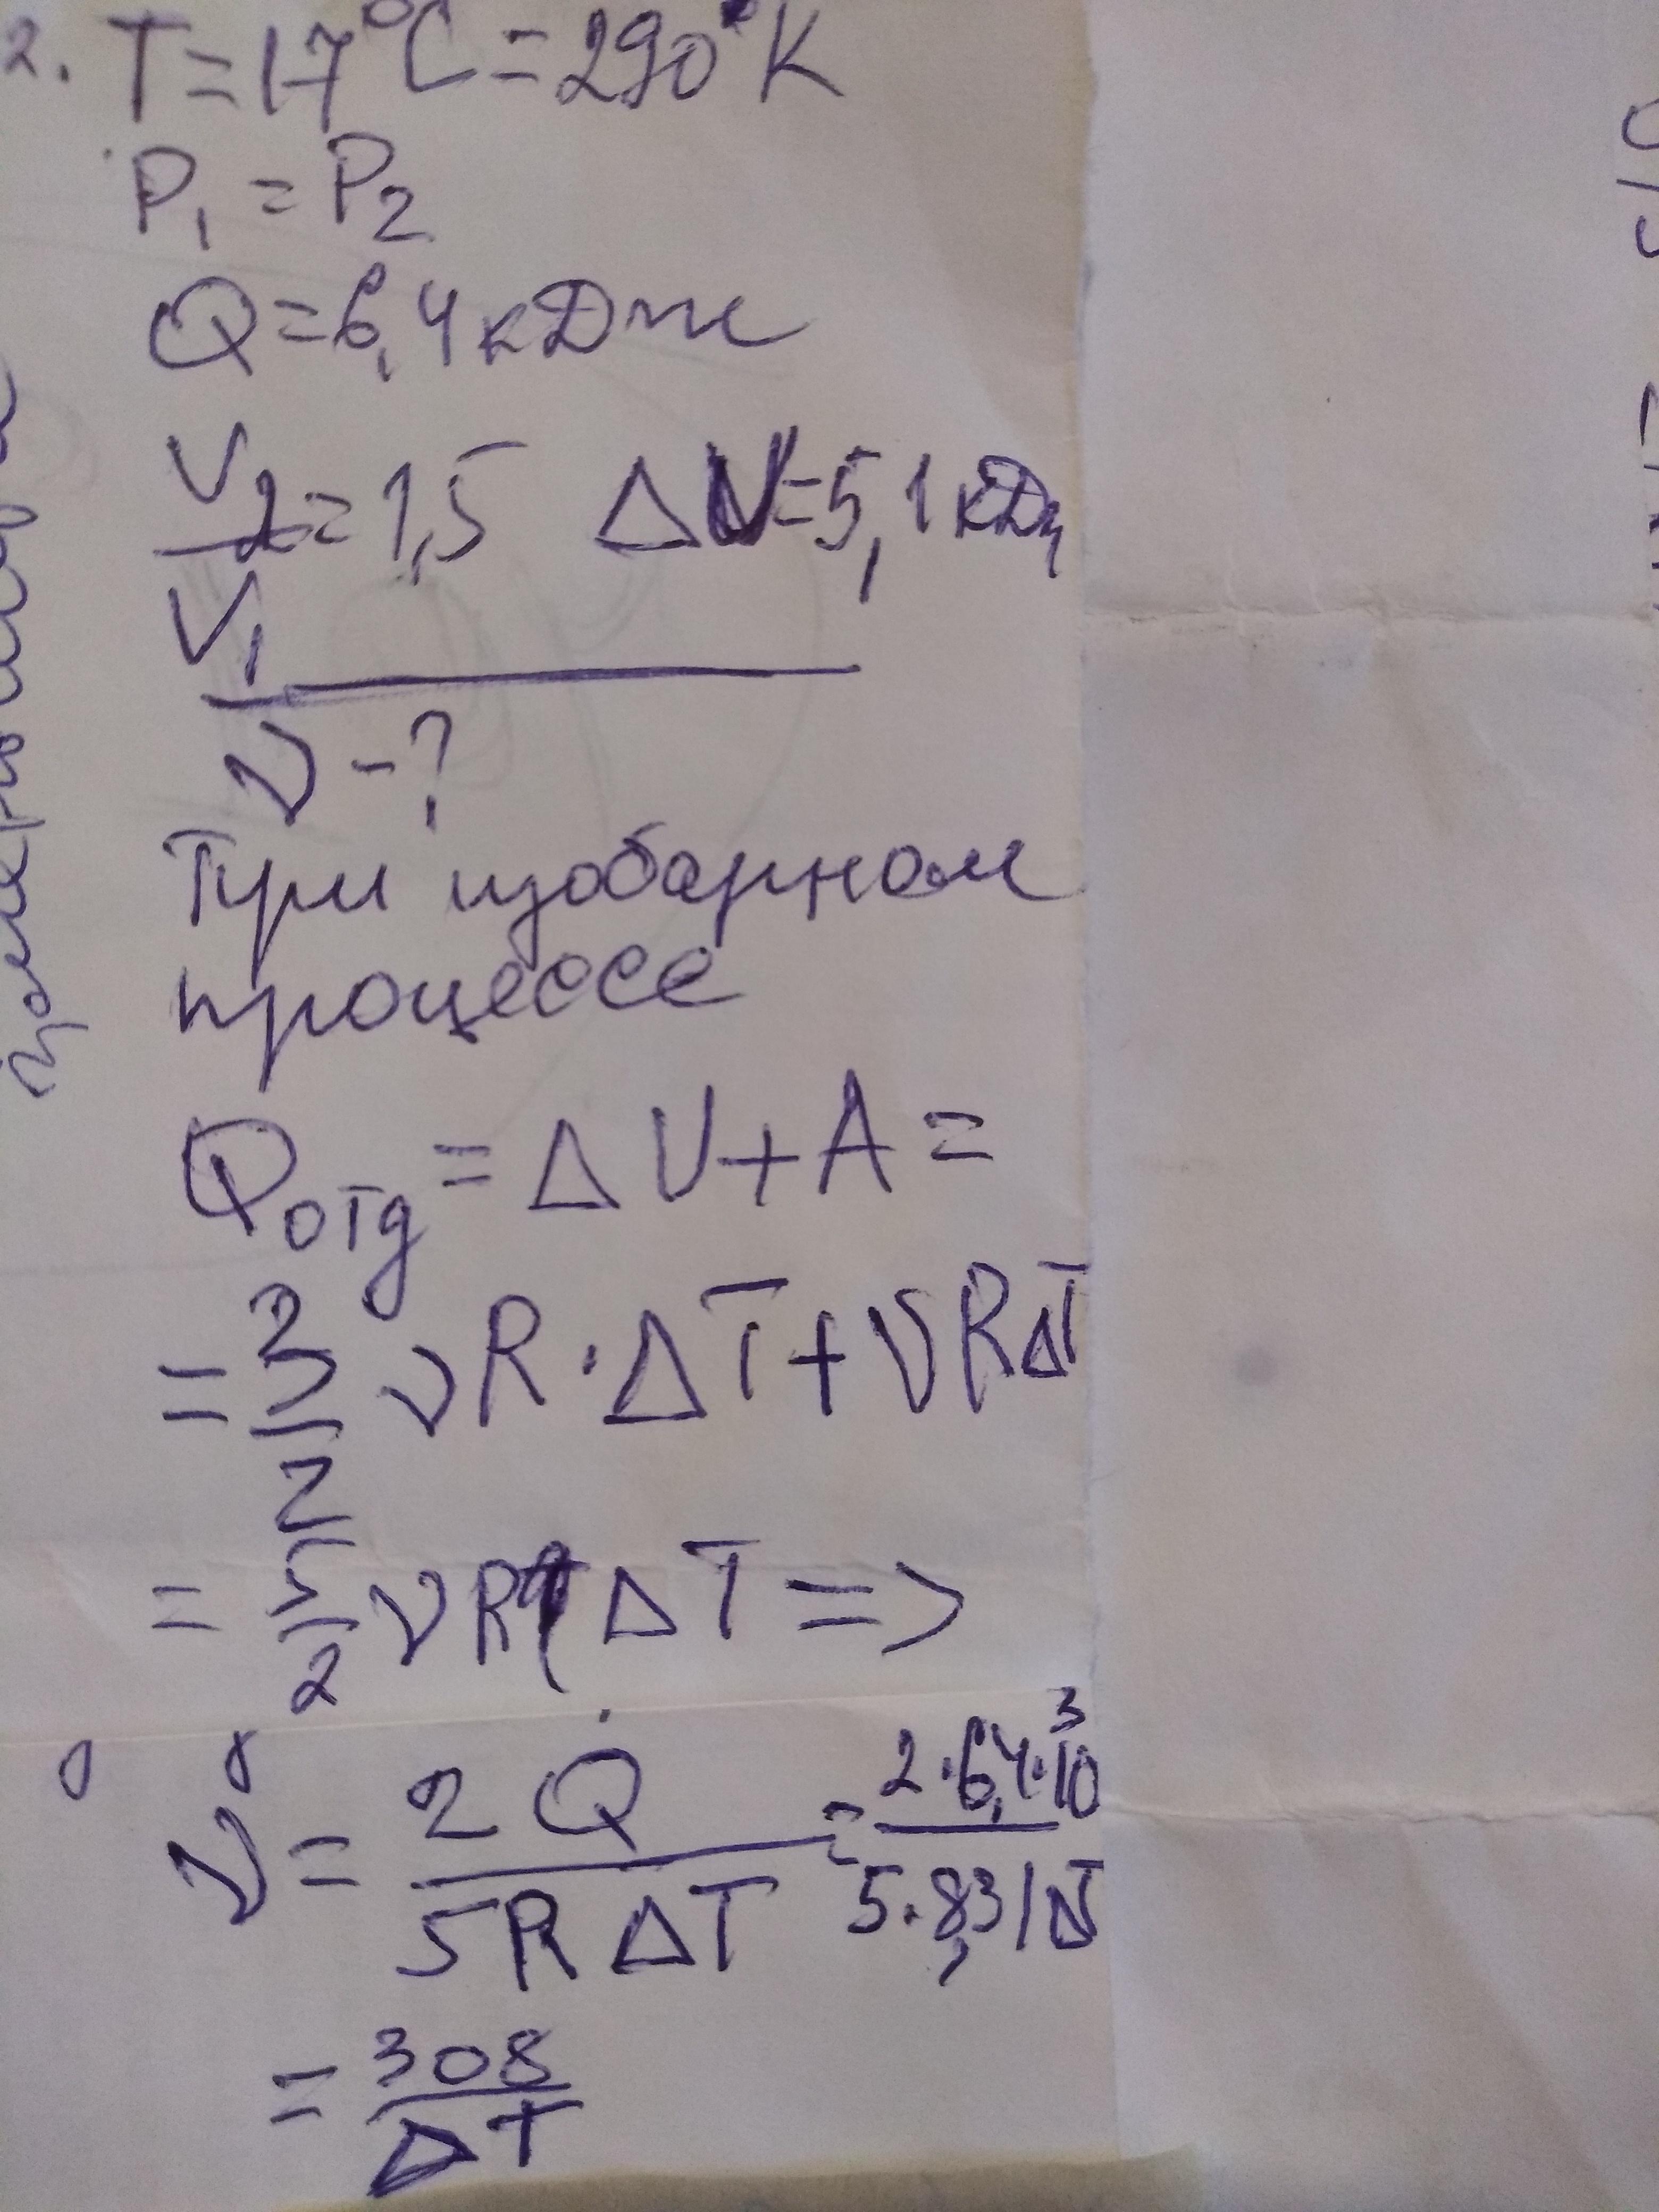 2. T=17°C=290°K
P₁ = P₂
Q=6,4 кДж
V₂/V₁=1,5 ΔU=5,1кДж
ν-?
При изобарном
процессе
Qотд = ΔU+A=
= 3/2 νR·ΔT+νRΔT
= 5/2 νR ΔT =>
ν = 2Q/5RΔT = 2·6,4·10³/5·8,31ΔT
= 308/ΔT